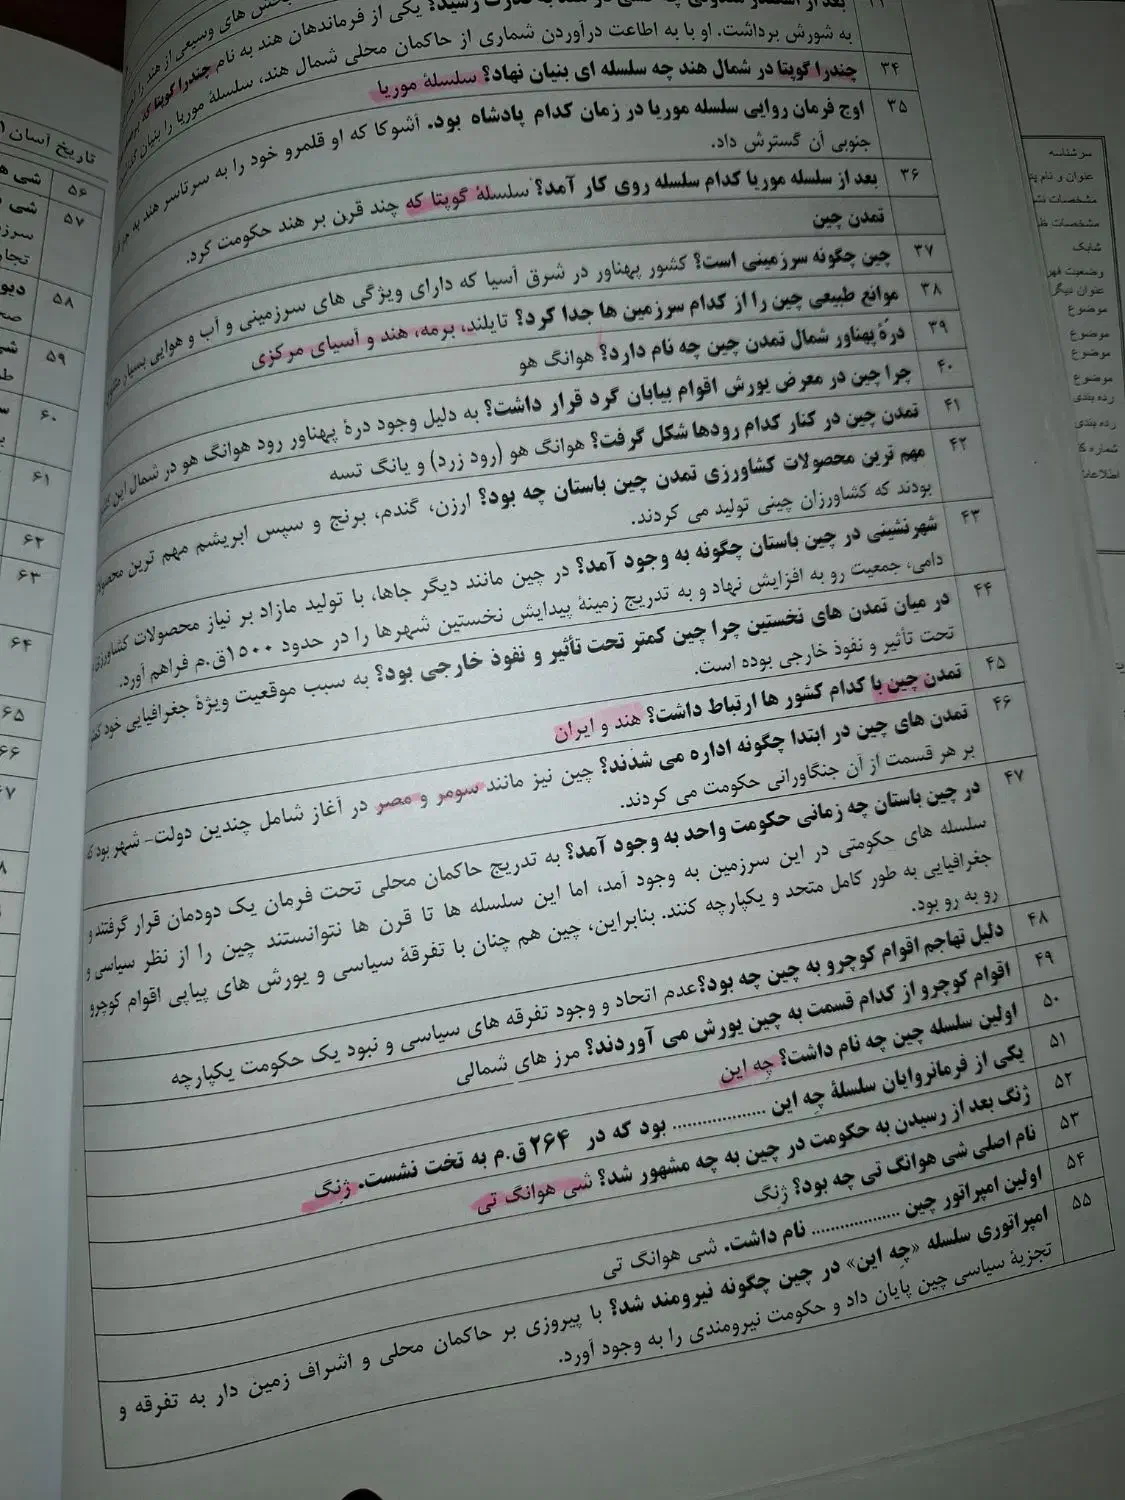 به شورش برداشت. او با به اطاعت درآوردن شماری از حاکمان محلی شمال هند، سلسلهٔ موریا را بنیان
۳۴ چندرا گوپتا در شمال هند چه سلسله ای بنیان نهاد؟ سلسلهٔ موریا
۳۵ اوج فرمان روایی سلسله موریا در زمان کدام پادشاه بود. آشوکا که او قلمرو خود را به سرتاسر هند به جز
جنوبی آن گسترش داد.
۳۶ بعد از سلسله موریا کدام سلسله روی کار آمد؟ سلسلهٔ گوپتا که چند قرن بر هند حکومت کرد.
تمدن چین
۳۷ چین چگونه سرزمینی است؟ کشور پهناور در شرق آسیا که دارای ویژگی های سرزمینی و آب و هوایی بسیار
۳۸ موانع طبیعی چین را از کدام سرزمین ها جدا کرد؟ تایلند، برمه، هند و آسیای مرکزی
۳۹ درّهٔ پهناور شمال تمدن چین چه نام دارد؟ هوانگ هو
۴۰ چرا چین در معرض یورش اقوام بیابان گرد قرار داشت؟ به دلیل وجود درهٔ پهناور رود هوانگ هو در شمال این
۴۱ تمدن چین در کنار کدام رودها شکل گرفت؟ هوانگ هو (رود زرد) و یانگ تسه
۴۲ مهم ترین محصولات کشاورزی تمدن چین باستان چه بود؟ ارزن، گندم، برنج و سپس ابریشم مهم ترین
بودند که کشاورزان چینی تولید می کردند.
۴۳ شهرنشینی در چین باستان چگونه به وجود آمد؟ در چین مانند دیگر جاها، با تولید مازاد بر نیاز محصولات کشاورزی
دامی، جمعیت رو به افزایش نهاد و به تدریج زمینهٔ پیدایش نخستین شهرها را در حدود ۱۵۰۰ق.م فراهم آورد.
۴۴ در میان تمدن های نخستین چرا چین کمتر تحت تأثیر و نفوذ خارجی بود؟ به سبب موقعیت ویژهٔ جغرافیایی خود
تحت تأثیر و نفوذ خارجی بوده است.
۴۵ تمدن چین با کدام کشور ها ارتباط داشت؟ هند و ایران
۴۶ تمدن های چین در ابتدا چگونه اداره می شدند؟ چین نیز مانند سومر و مصر در آغاز شامل چندین دولت- شهر بود که
بر هر قسمت از آن جنگاورانی حکومت می کردند.
۴۷ در چین باستان چه زمانی حکومت واحد به وجود آمد؟ به تدریج حاکمان محلی تحت فرمان یک دودمان قرار گرفتند و
سلسله های حکومتی در این سرزمین به وجود آمد، اما این سلسله ها تا قرن ها نتوانستند چین را از نظر سیاسی و
جغرافیایی به طور کامل متحد و یکپارچه کنند. بنابراین، چین هم چنان با تفرقهٔ سیاسی و یورش های پیاپی اقوام کوچرو
رو به رو بود.
۴۸ دلیل تهاجم اقوام کوچرو به چین چه بود؟عدم اتحاد و وجود تفرقه های سیاسی و نبود یک حکومت یکپارچه
۴۹ اقوام کوچرو از کدام قسمت به چین یورش می آوردند؟ مرز های شمالی
۵۰ اولین سلسله چین چه نام داشت؟ چه این
۵۱ یکی از فرمانروایان سلسلهٔ چِه این .................. بود که در ۲۶۴ ق.م به تخت نشست. ژنگ
۵۲ ژنگ بعد از رسیدن به حکومت در چین به چه مشهور شد؟ شی هوانگ تی
۵۳ نام اصلی شی هوانگ تی چه بود؟ ژنگ
۵۴ اولین امپراتور چین .................. نام داشت. شی هوانگ تی
۵۵ امپراتوری سلسله «چِه این» در چین چگونه نیرومند شد؟ با پیروزی بر حاکمان محلی و اشراف زمین دار به تفرقه و
تجزیهٔ سیاسی چین پایان داد و حکومت نیرومندی را به وجود آورد.
تاریخ آسان
۵۶ شی
۵۷ شی
۵۸
۵۹
۶۰
۶۱
۶۲
۶۳
۶۴
سرشناسه
عنوان و نام
مشخصات
مشخصات
شابک
وضعیت
عنوان دیگر
موضوع
موضوع
موضوع
موضوع
رده بندی
رده بندی
شماره